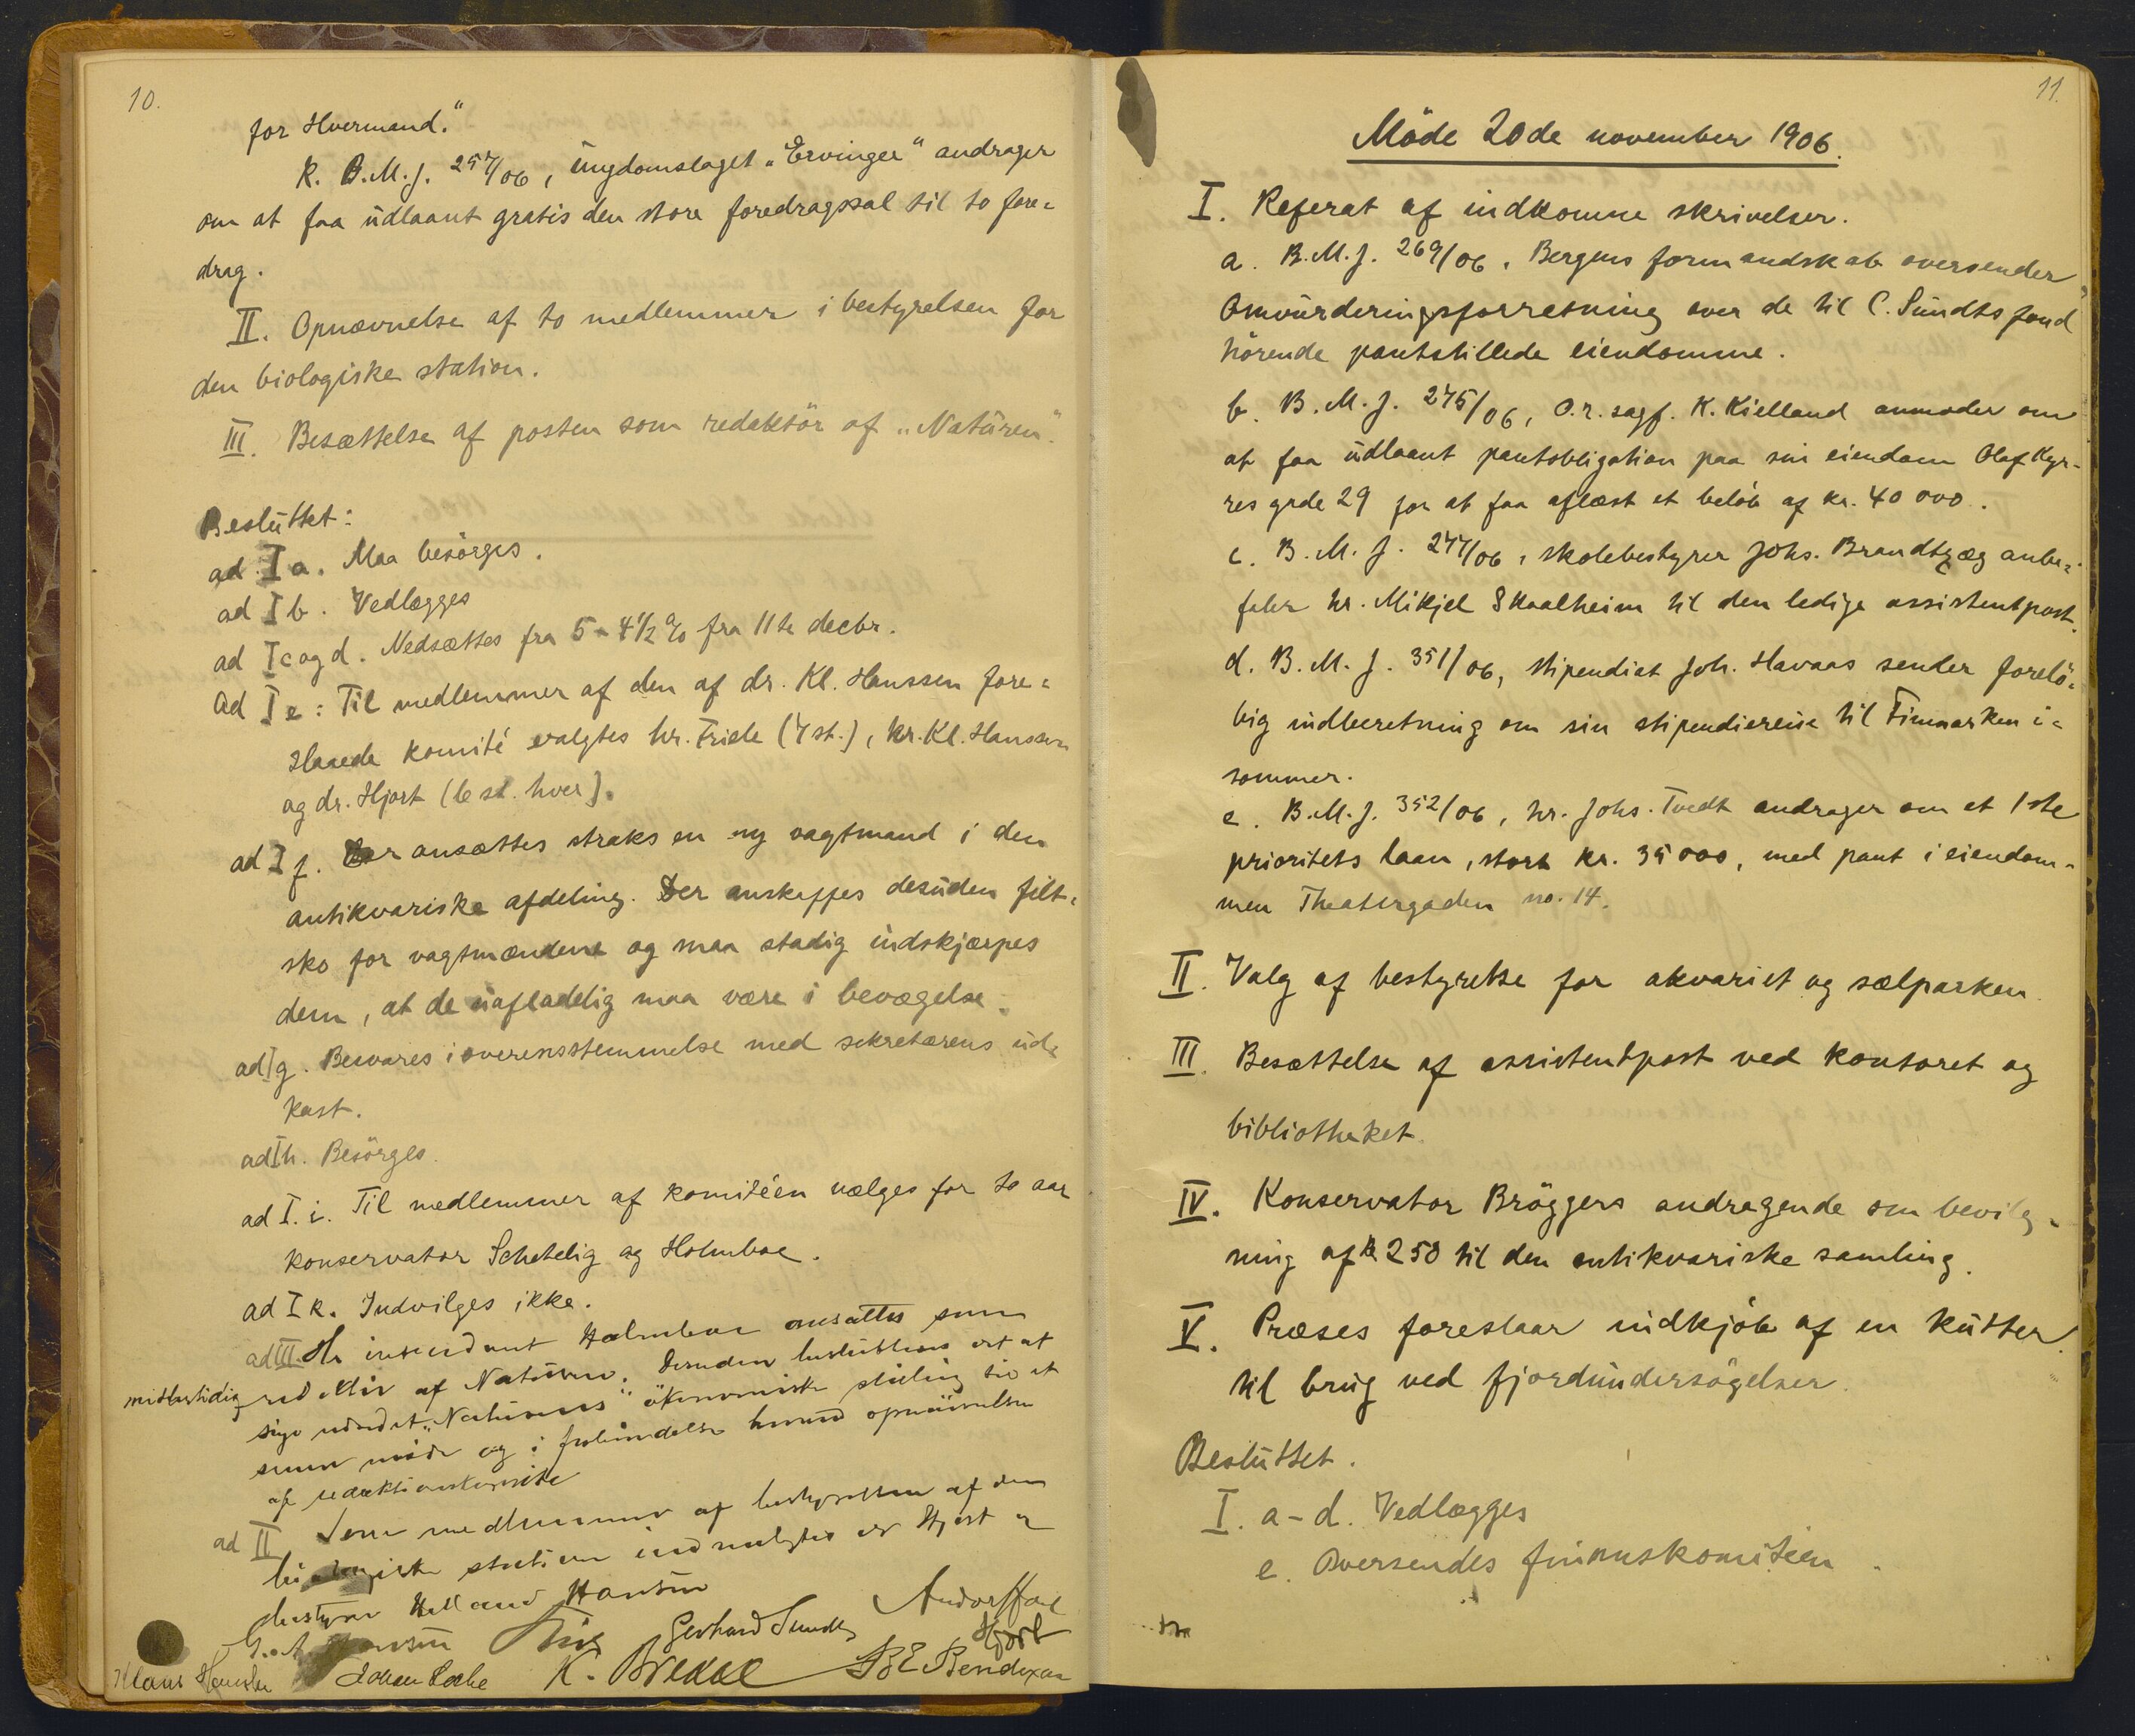 10.
for Hvermand."
k. B.M.J. 257/06, ungdomslaget „Ervingen" andrager
om at faa udlaant gratis den store foredragssal til to fore-
drag.
II. Opnævnelse af to medlemmer i bestyrelsen for
den biologiske station.
III. Besættelse af posten som redaktör af „Naturen".
Besluttet:
ad I a. Maa besörges.
ad I b. Vedlægges
ad I c og d. Nedsættes fra 5 - 4½ % fra 11te decbr.
Ad I e: Til medlemmer af den af dr. Kl. Hanssen fore-
slaaede komité valgtes hr. Friele (7 st.), hr. Kl. Hanssen
og dr. Hjort (6 st. hver).
ad I f. Der ansættes straks en ny vagtmand i den
antikvariske afdeling. Der anskaffes desuden filt-
sko for vagtmændene og maa stadig indskjærpes
dem, at de uafladelig maa være i bevægelse.
ad I g. Besvares i overensstemmelse med sekretærens ud-
kast.
ad I h. Besörges.
ad I. i. Til medlemmer af komitéen vælges for to aar
konservator Schetelig og Holmboe.
ad I k. Indvilges ikke.
ad III. Hr Holmboe ansættes som
midlertidig redaktör af Naturen. Desuden besluttedes det at
„Naturens" ökonomiske stilling til et
senere möde og i forbindelse hermed opnævnelse
af redaktionskomite
ad II Som medlemmer af bestyrelsen af den
biologiske station indvalgtes dr Hjort og
bestyrer Helland Hansen
Gerhard Sundt
Hjort
Klaus Hanssen
Johan Bøgh
K. Bredal
B E Bendixen
11.
Möde 20de november 1906.
I. Referat af indkomne skrivelser.
a. B.M.J. 269/06, Bergens formandskab oversender
Omvurderingsforretning over de til C. Sundts fond
hörende pantstillede eiendomme.
b. B.M.J. 275/06, O.r. sagf. K. Kielland anmoder om
at faa udlaant pantobligation paa sin eiendom Olaf Kyr-
res gade 29 for at faa aflæst et belöb af kr. 40 000.
c. B.M.J. 277/06, skolebestyrer Johs. Brandtzæg anbe-
faler hr. Mikjel Skaalheim til den ledige assistentpost.
d. B.M.J. 351/06, stipendiat Joh. Havaas sender forelö-
big indberetning om sin stipendiereise til Finmarken i-
sommer.
e. B.M.J. 352/06, hr. Johs. Tvedt andrager om et 1ste
prioritets laan, stort kr. 35 000, med pant i eiendom-
men Theatergaden no. 14.
II. Valg af bestyrelse for akvariet og sælparken.
III. Besættelse af assistentpost ved kontoret og
bibliotheket.
IV. Konservator Bröggers andragende om bevilg-
ning af kr 250 til den antikvariske samling.
V. Præses foreslaar indkjöb af en kutter
til brug ved fjordundersögelser.
Besluttet.
I. a-d. Vedlægges
e. Oversendes finanskomitéen.